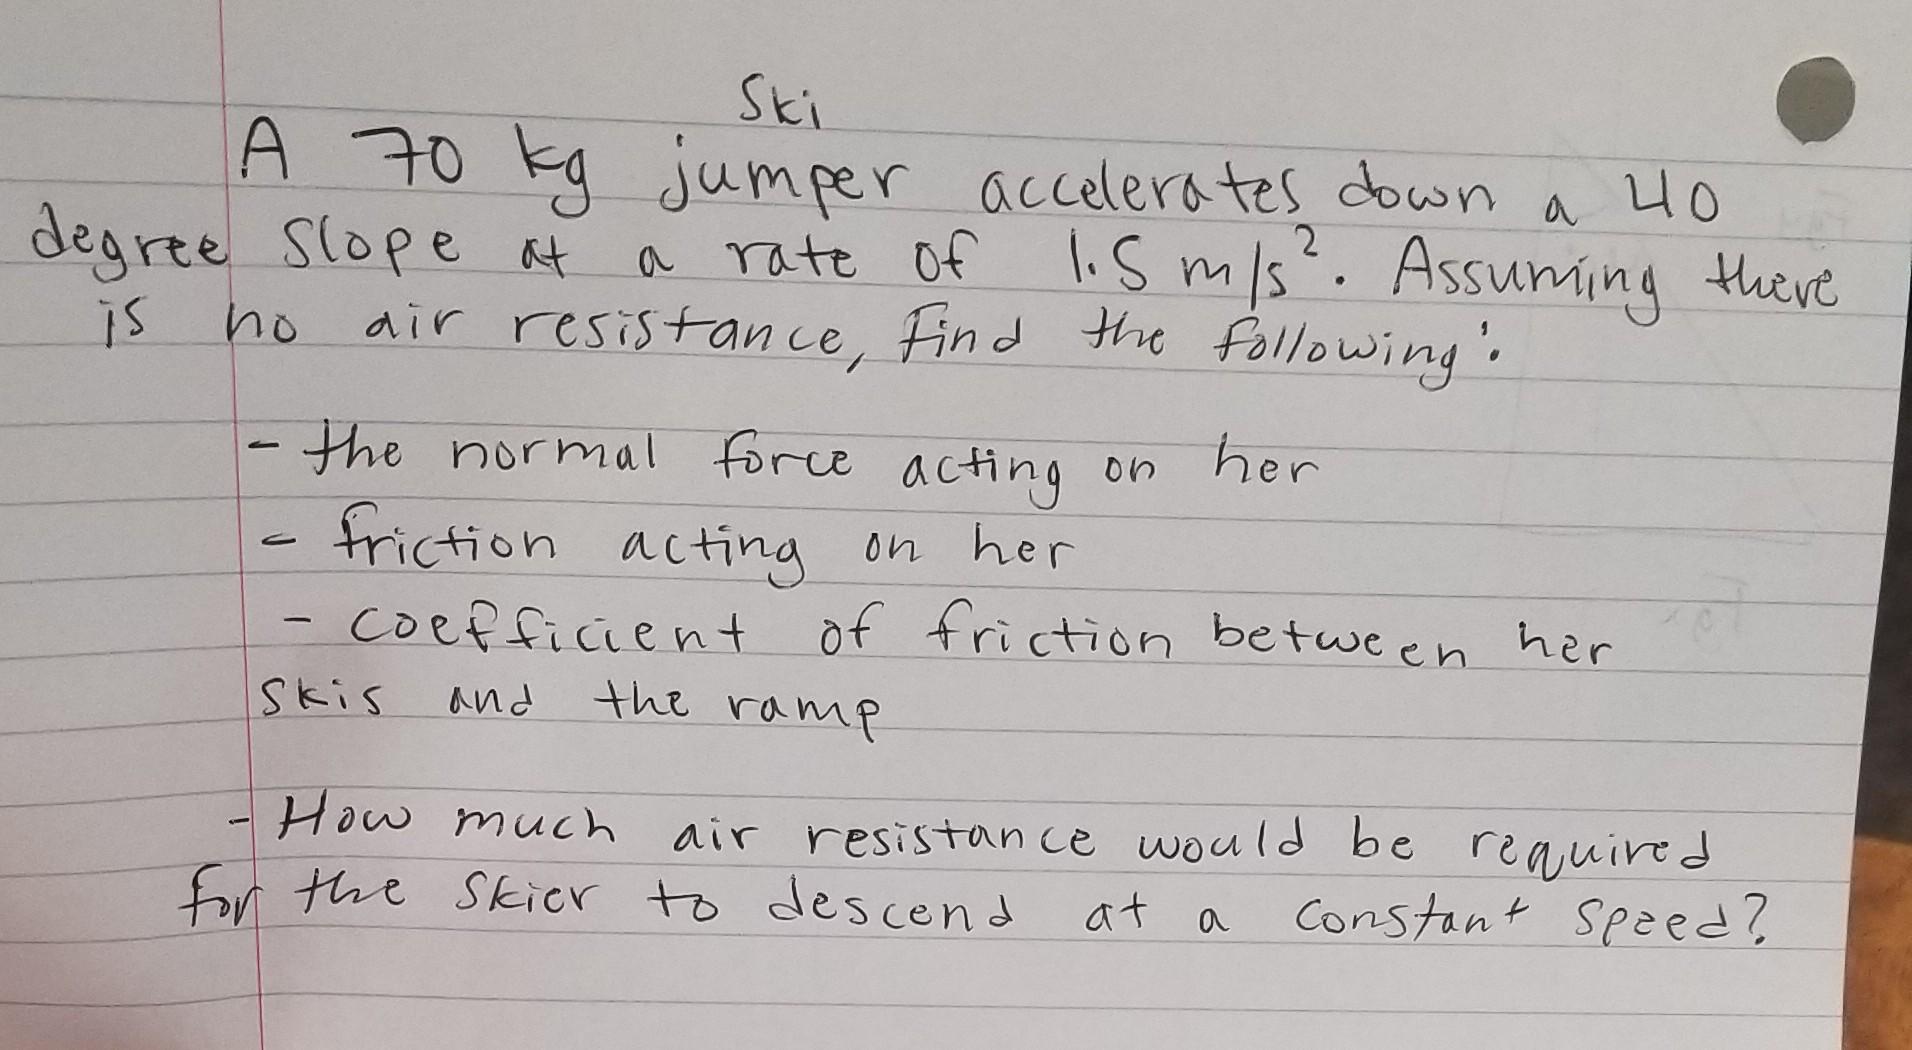 Ski
A 70 kg jumper accelerates down a 40
degree slope at a rate of 1.5 m/s². Assuming there
is no air resistance, find the following:
- the normal force acting on her
- friction acting on her
- coefficient of friction between her
skis and the ramp
- How much air resistance would be required
for the skier to descend at a constant speed?